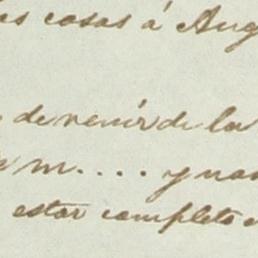 cosas á Aug
de venir de la
m.... y nos
estar completo